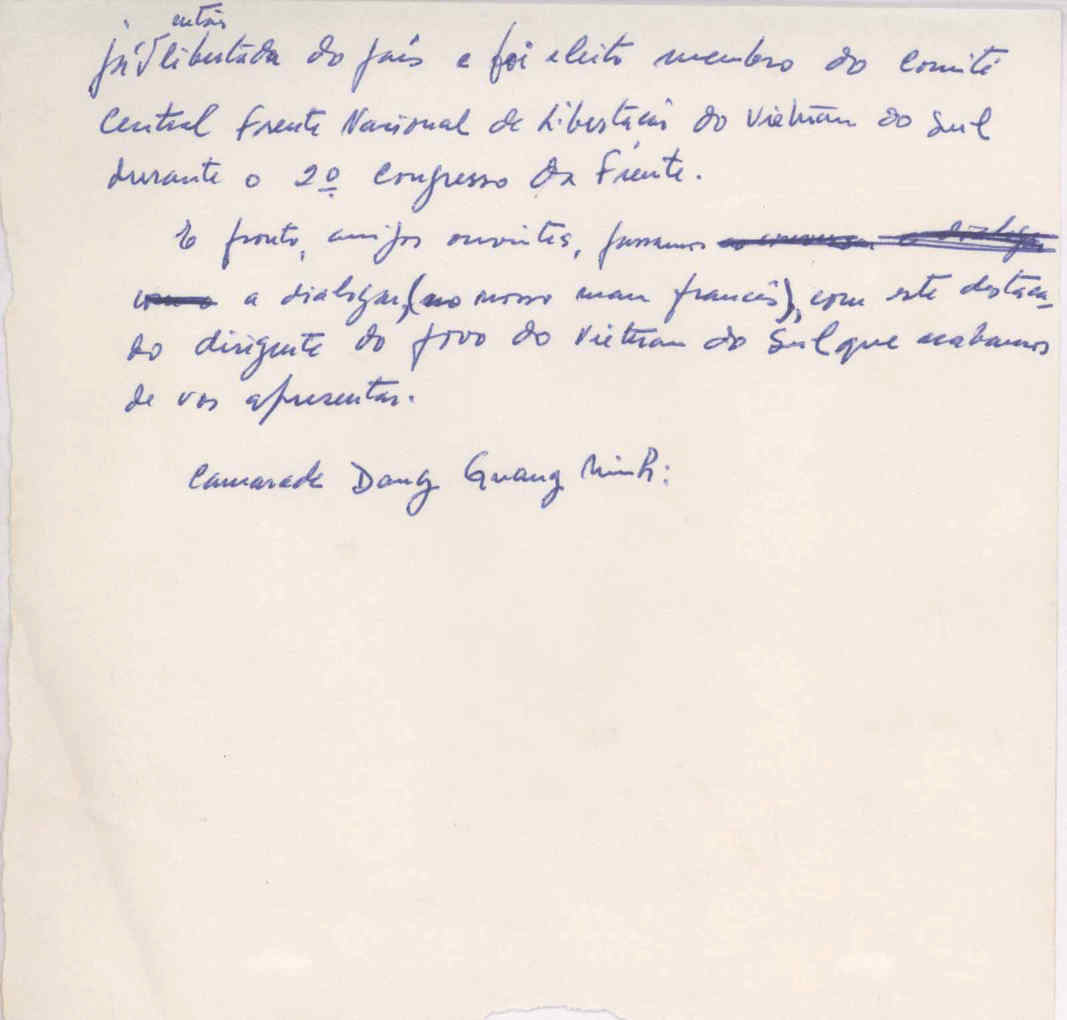 já então libertada do país e foi eleito membro do Comité
Central Frente Nacional de Libertação do Vietnam do Sul
durante o 2º Congresso da Frente.
E pronto, amigos ouvintes, passamos
a dialogar, (no nosso mau francês), com este destaca-
do dirigente do povo do Vietnam do Sul que acabamos
de vos apresentar.
Camarada Dang Quang Minh: